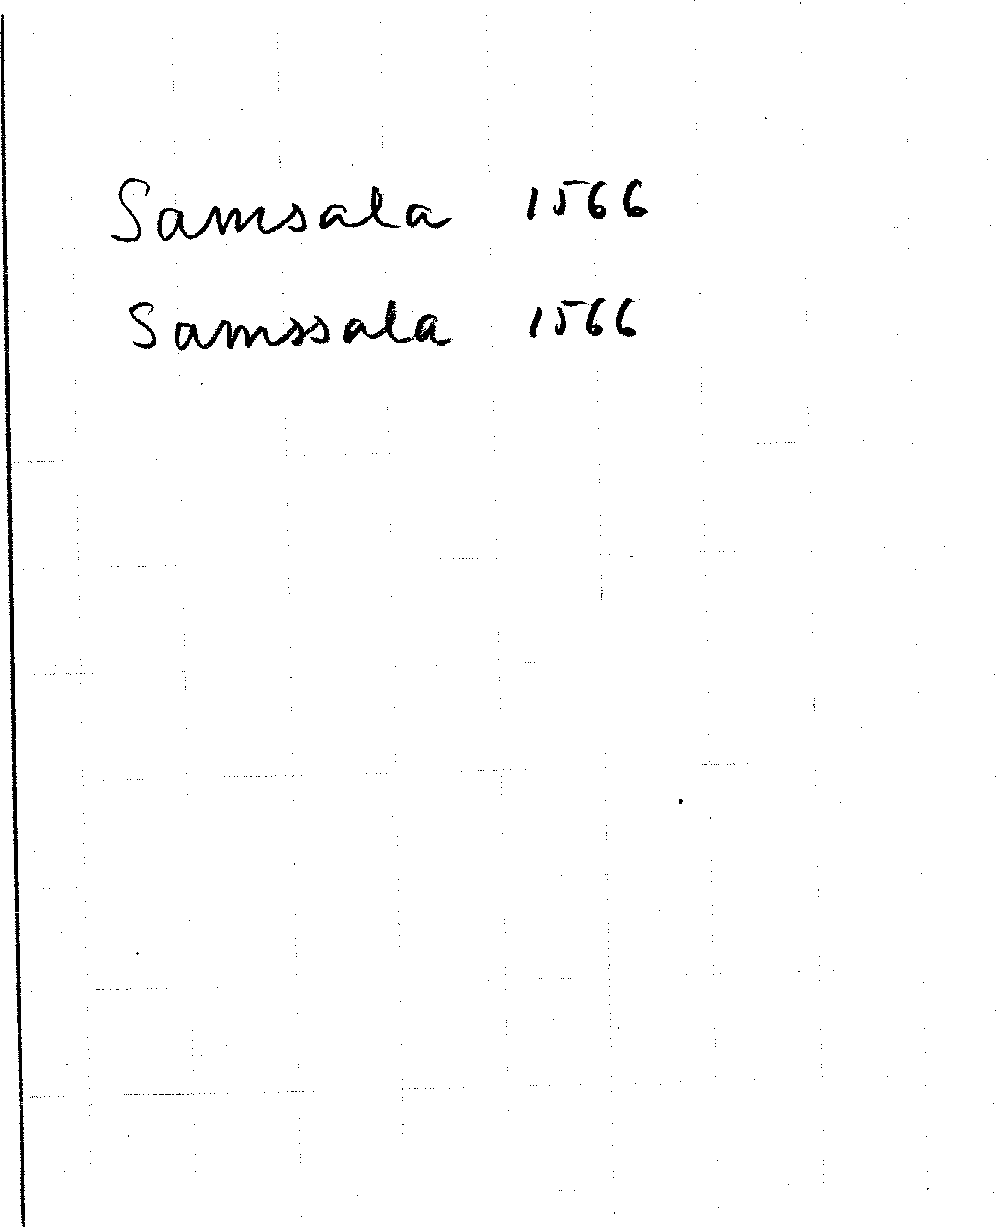 Samsala 1566
Samssala 1566